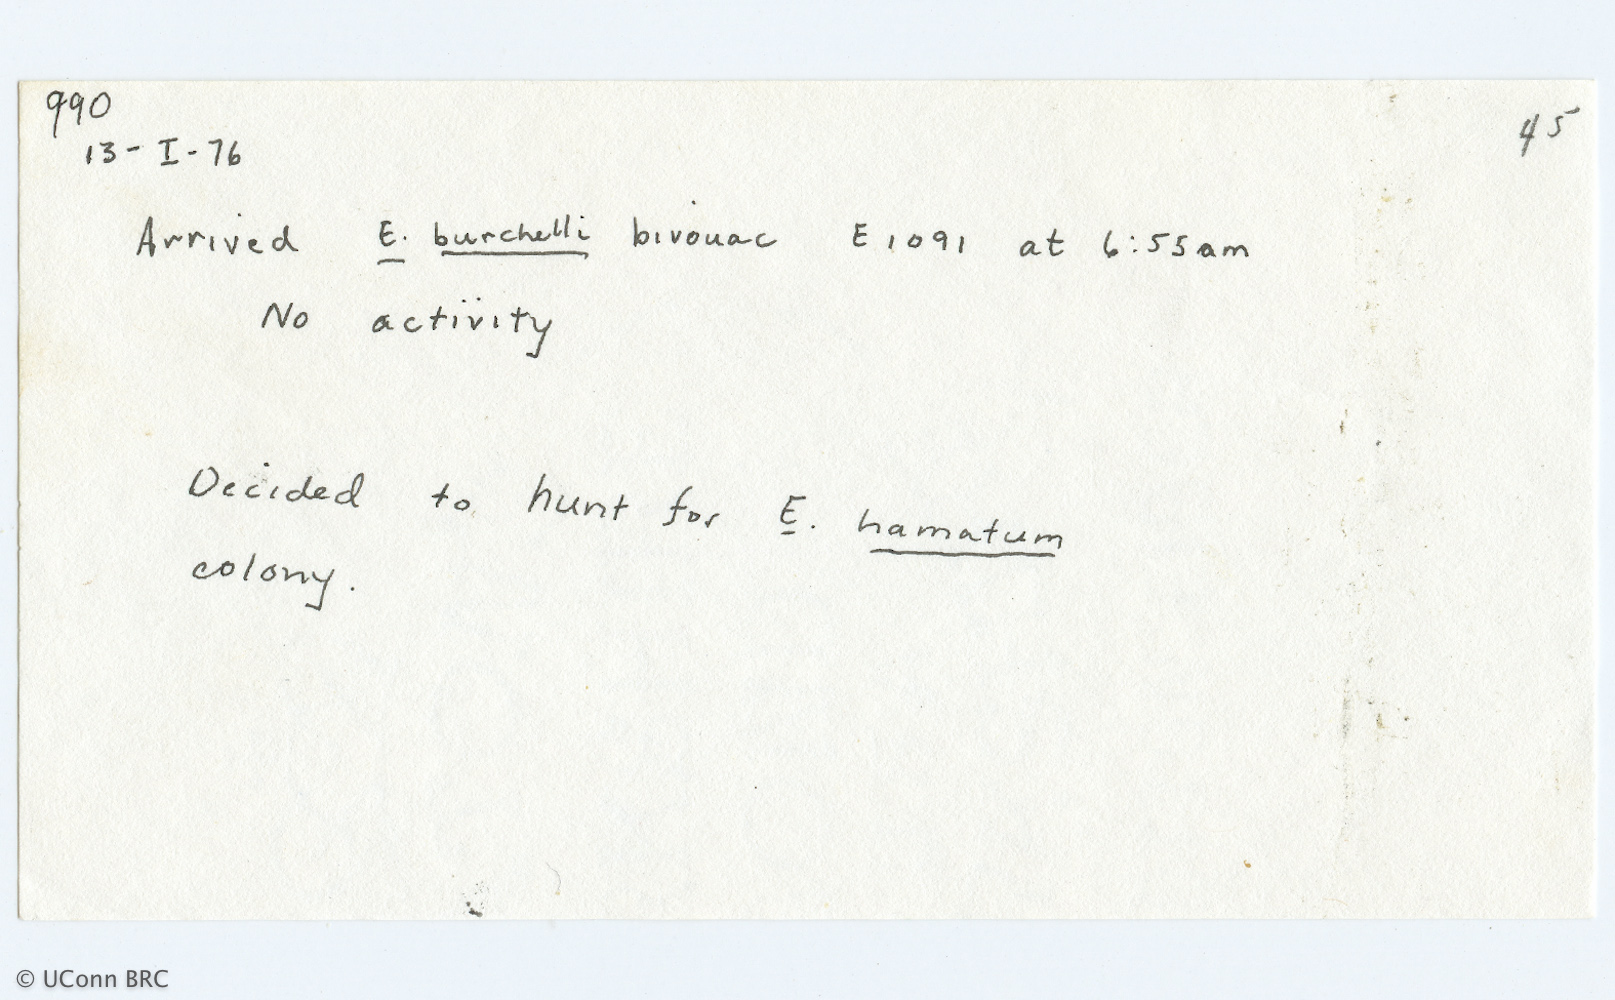 990
45
13-I-76
Arrived E. burchelli bivouac E1091 at 6:55am
No activity
Decided to hunt for E. hamatum
colony.
© UConn BRC